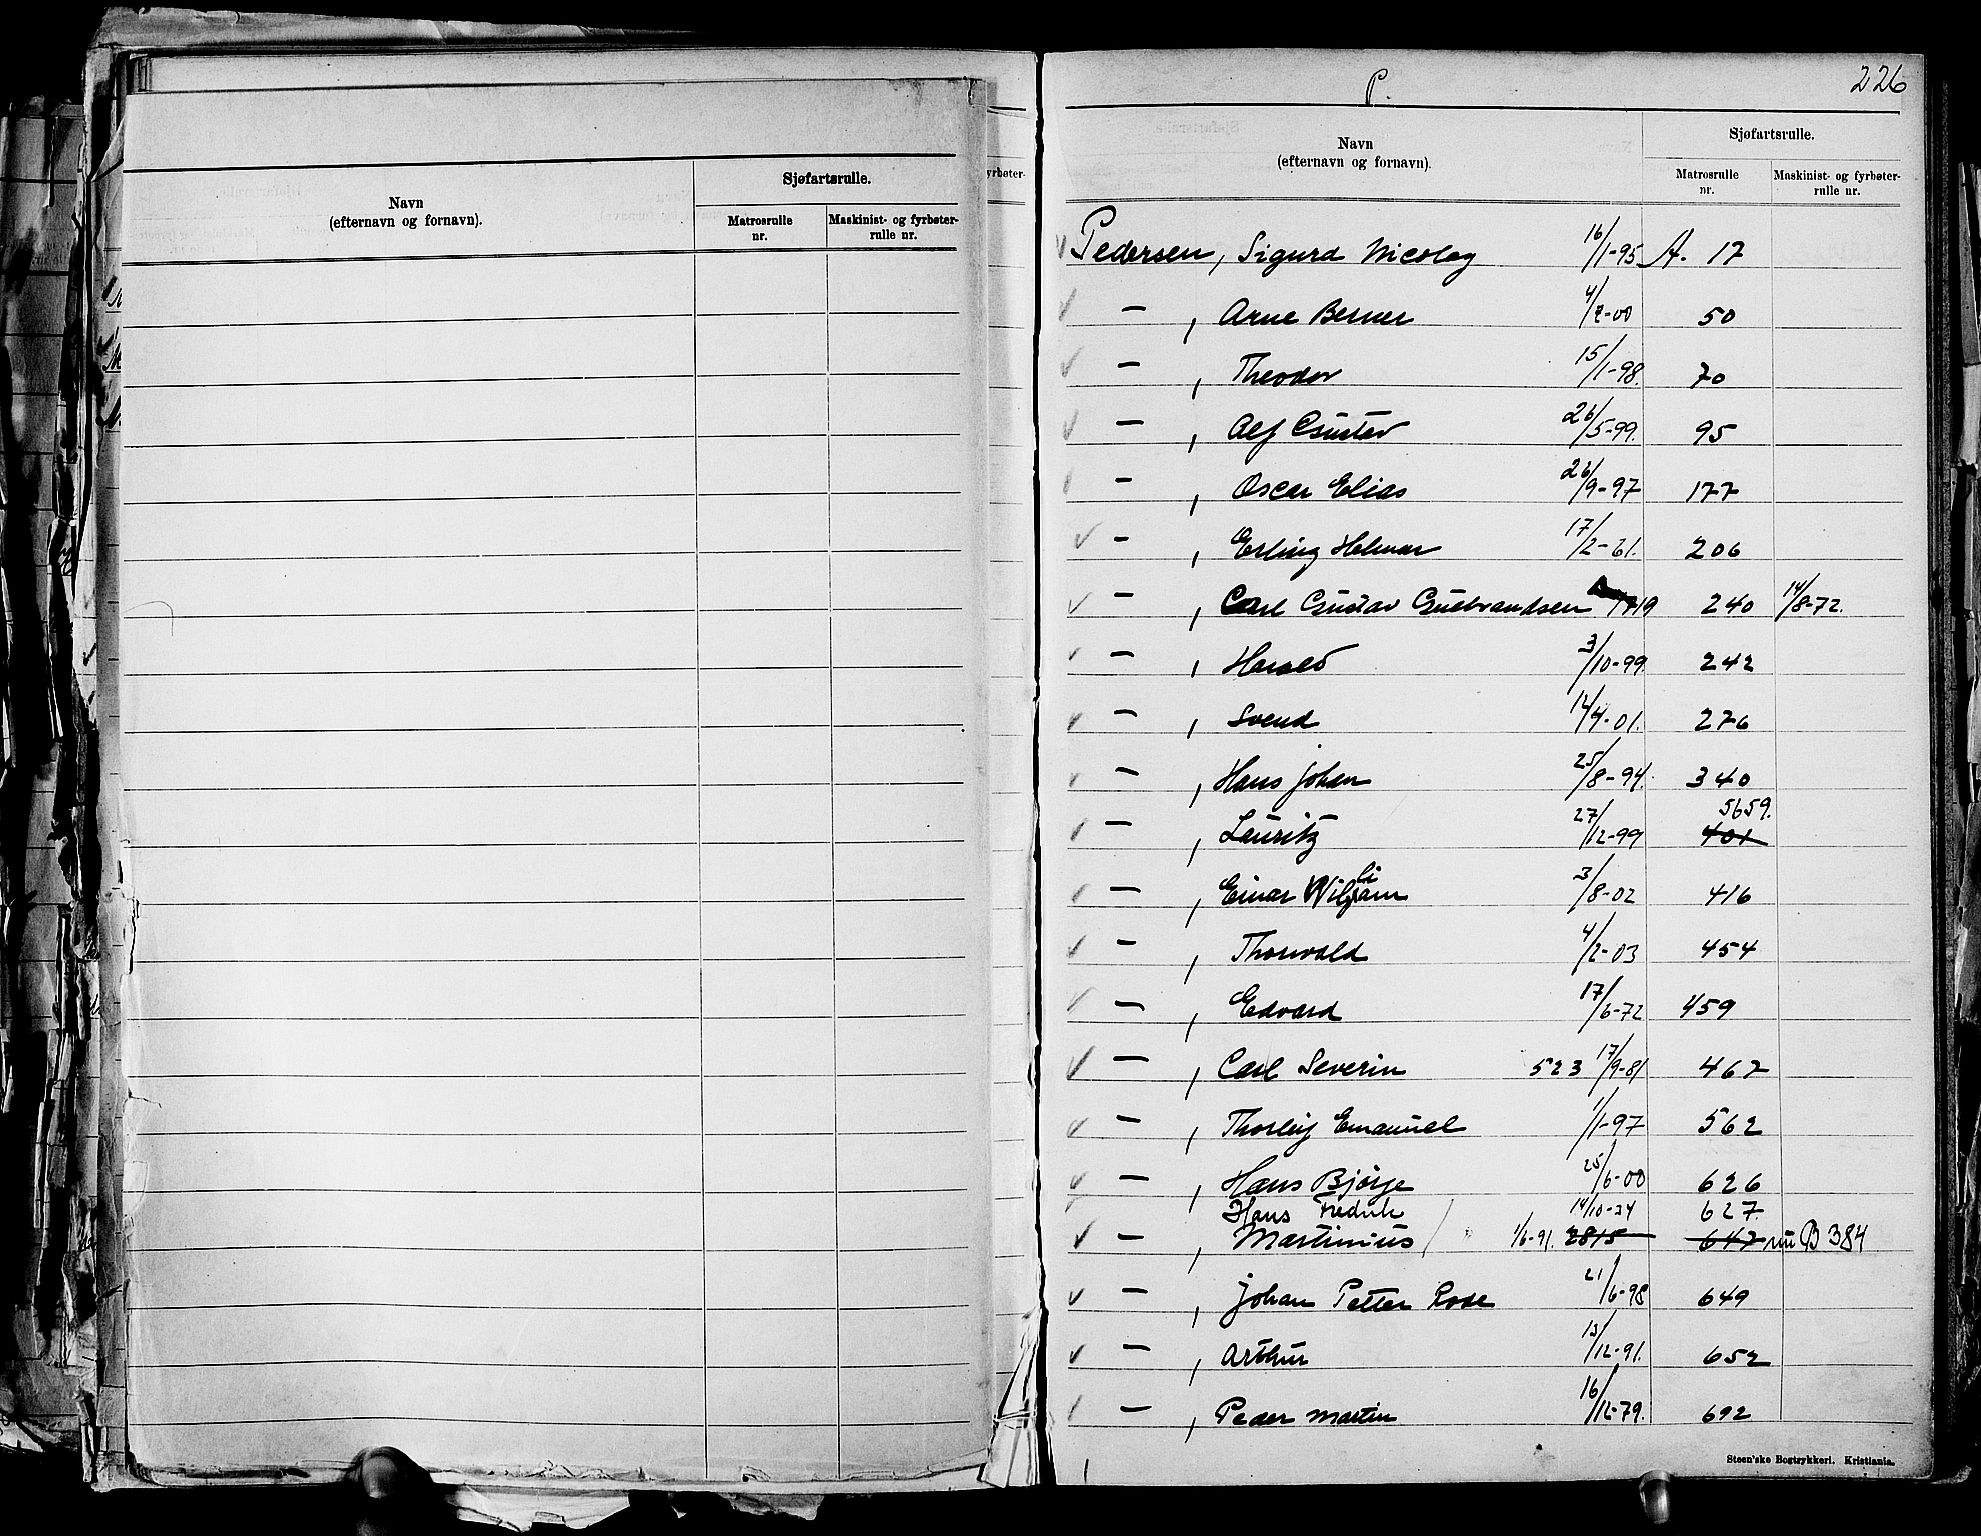 Sjøfartsrulle.
Navn
(efternavn og fornavn).
Matrosrulle
nr.
Maskinist- og fyrbøter-
rulle nr.
yrbøter-
P.
226
Sjøfartsrulle.
Navn
(efternavn og fornavn).
Matrosrulle
nr.
Maskinist- og fyrbøter-
rulle nr.
Pedersen, Sigurd Nicolay 16/1-95 A. 17
— , Arne Berner 4/2-00 50
— , Theodor 15/1-98. 70
— , Alf Gustav 26/5-99. 95
— , Oscar Elias 26/9-97 177
— , Erling Helmar 17/2-61. 206
— , Carl Gustav Gudbrandsen 240 14/8-72.
— , Harald 3/10-99. 242
— , Svend 12/4-01. 276
— , Hans Johan 25/8-94. 340
5659.
— , Lauritz 27/12-99 401
— , Einar William 3/8-02 416
— , Thorvald 4/2-03 454
— , Edvard 17/6-72 459
— , Carl Severin 523 17/9-81 467
— , Thorleif Emanuel 1/1-97 562
— , Hans Bjørge 25/6-00 626
Hans Fredrik 14/10-34 627.
— , Martinius 1/6-91. 2815 647 nu B 384
— , Johan Petter Rose 21/6-98 649
— , Arthur 13/12-91. 652
— , Peder Martin 16/12-79. 692
Steen'ske Bogtrykkeri. Kristiania.